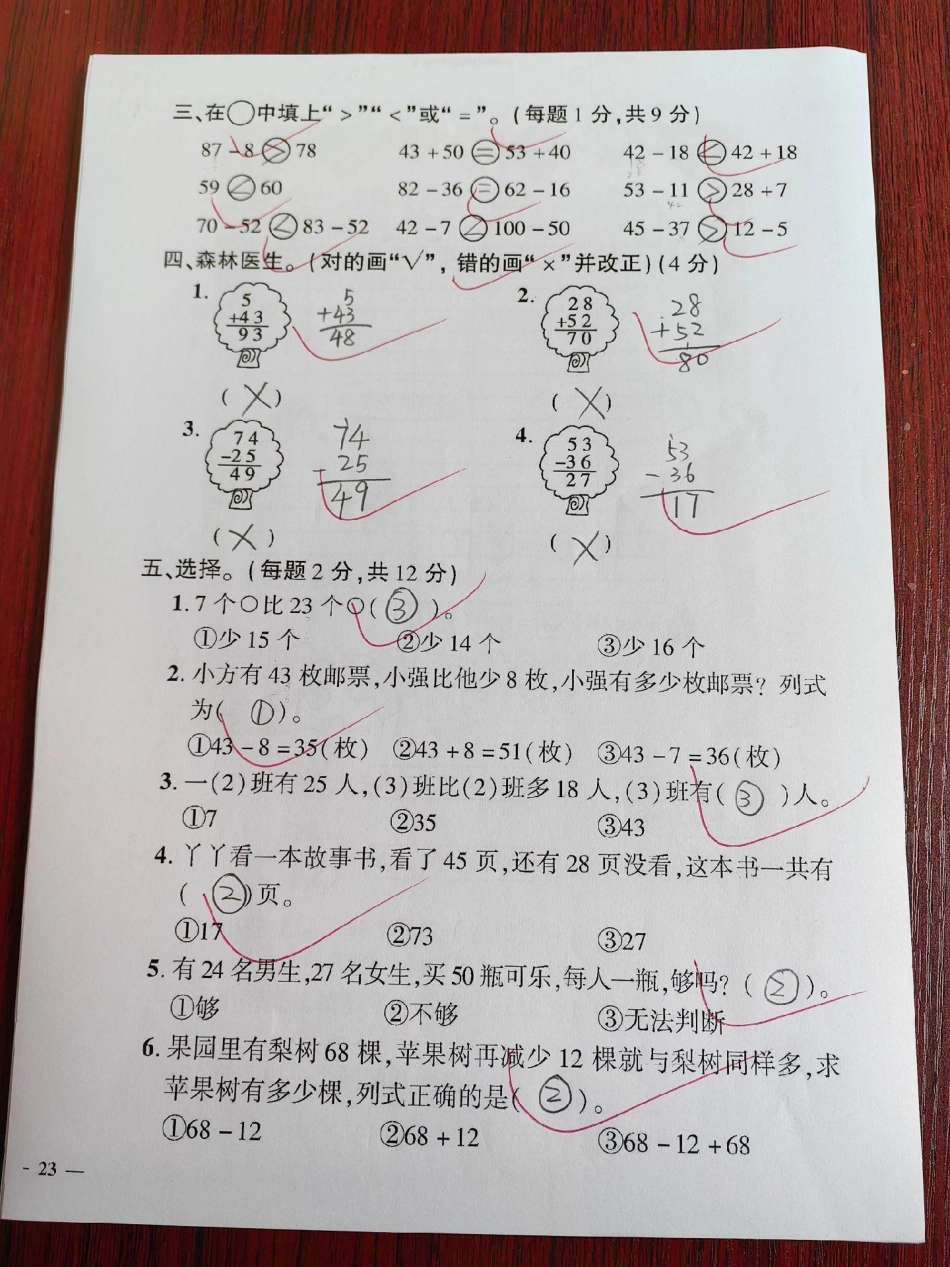 三、在○中填上“>”“<”或“=”。(每题1分,共9分)
87-8>78 43+50=53+40 42-18<42+18
59<60 82-36=62-16 53-11>28+7
70-52<83-52 42-7<100-50 45-37>12-5
四、森林医生。(对的画“√”,错的画“×”并改正)(4分)
1. 5 5 2. 28 28
+43 +43 +52 +52
93 48 70 80
(×) (×)
3. 74 74 4. 53 53
-25 25 -36 -36
49 49 27 17
(×) (×)
五、选择。(每题2分,共12分)
1.7个○比23个○(③)。
①少15个 ②少14个 ③少16个
2.小方有43枚邮票,小强比他少8枚,小强有多少枚邮票?列式
为(①)。
①43-8=35(枚) ②43+8=51(枚) ③43-7=36(枚)
3.一(2)班有25人,(3)班比(2)班多18人,(3)班有(③)人。
①7 ②35 ③43
4.丫丫看一本故事书,看了45页,还有28页没看,这本书一共有
(②)页。
①17 ②73 ③27
5.有24名男生,27名女生,买50瓶可乐,每人一瓶,够吗?(②)。
①够 ②不够 ③无法判断
6.果园里有梨树68棵,苹果树再减少12棵就与梨树同样多,求
苹果树有多少棵,列式正确的是(②)。
①68-12 ②68+12 ③68-12+68
- 23 —